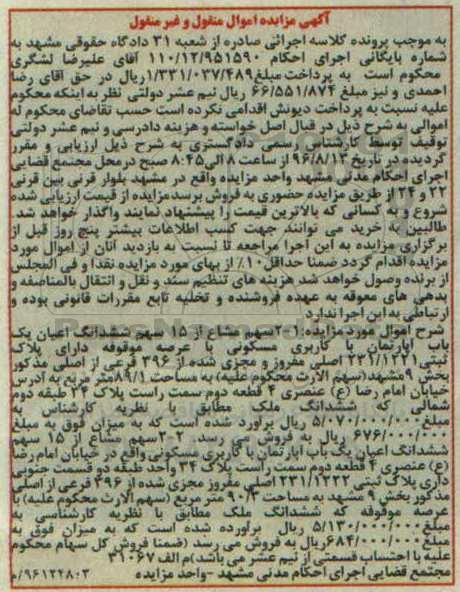 آگهی مزایده اموال منقول و غیر منقول
به موجب پرونده کلاسه اجرائی صادره از شعبه ۳۱ دادگاه حقوقی مشهد به
شماره بایگانی اجرای احکام ۱۱۰/۱۲/۹۵۱۵۹۰ آقای علیرضا لشگری
محکوم است به پرداخت مبلغ۱/۳۳۱/۰۳۷/۴۸۹ریال در حق آقای رضا
احمدی و نیز مبلغ ۶۶/۵۵۱/۸۷۴ ریال نیم عشر دولتی نظر به اینکه محکوم
علیه نسبت به پرداخت دیونش اقدامی نکرده است حسب تقاضای محکوم له
اموالی به شرح ذیل در قبال اصل خواسته و هزینه دادرسی و نیم عشر دولتی
توقیف توسط کارشناس رسمی دادگستری به شرح ذیل ارزیابی و مقرر
گردیده در تاریخ ۹۶/۸/۱۳ از ساعت ۸ الی ۸:۴۵ صبح درمحل مجتمع قضایی
اجرای احکام مدنی مشهد واحد مزایده واقع در مشهد بلوار قرنی بین قرنی
۲۲ و ۲۴ از طریق مزایده حضوری به فروش برسدمزایده از قیمت ارزیابی شده
شروع و به کسانی که بالاترین قیمت را پیشنهاد نمایند واگذار خواهد شد.
طالبین به خرید می توانند جهت کسب اطلاعات بیشتر پنج روز قبل از
برگزاری مزایده به این اجرا مراجعه تا نسبت به بازدید آنان از اموال مورد
مزایده اقدام گردد ضمنا حداقل ۱۰٪ از بهای مورد مزایده نقدا و فی المجلس
از برنده وصول خواهد شد هزینه های تنظیم سند و نقل و انتقال بالمناصفه و
بدهی های معوقه به عهده فروشنده و تخلیه تابع مقررات قانونی بوده و
ارتباطی به این اجرا ندارد
شرح اموال مورد مزایده:۱-۲سهم مشاع از ۱۵ سهم ششدانگ اعیان یک
باب آپارتمان با کاربری مسکونی با عرصه موقوفه دارای پلاک
ثبتی۲۳۱/۱۲۲۱ اصلی مفروز و مجزی شده از ۳۹۶ فرعی از اصلی مذکور
بخش ۹مشهد(سهم الارث محکوم علیه) به مساحت ۸۹/۱متر مربع به آدرس
خیابان امام رضا (ع) عنصری ۴ قطعه دوم سمت راست پلاک ۳۴ طبقه دوم
شمالی که ششدانگ ملک مطابق با نظریه کارشناس به
مبلغ۵/۰۷۰/۰۰۰/۰۰۰ ریال برآورد شده است که به میزان فوق به مبلغ
۶۷۶/۰۰۰/۰۰۰ ریال به فروش می رسد. ۲-۲سهم مشاع از ۱۵ سهم
ششدانگ اعیان یک باب آپارتمان با کاربری مسکونی واقع در خیابان امام رضا
(ع) عنصری ۴ قطعه دوم سمت راست پلاک ۳۴ واحد طبقه دو قسمت جنوبی
داری پلاک ثبتی ۲۳۱/۱۲۲۲ اصلی مفروز مجزی شده از ۳۹۶ فرعی از اصلی
مذکور بخش ۹ مشهد به مساحت ۹۰/۳ متر مربع (سهم الارث محکوم علیه) با
عرصه موقوفه که ششدانگ ملک مطابق با نظریه کارشناسی به
مبلغ۵/۱۳۰/۰۰۰/۰۰۰ ریال برآورده شده است که به میزان فوق به
مبلغ۶۸۴/۰۰۰/۰۰۰ریال به فروش می رسد (ضمنا فروش کل سهام محکوم
علیه با احتساب قسمتی از نیم عشر می باشد)م الف ۳۱۰۶۷
مجتمع قضایی اجرای احکام مدنی مشهد -واحد مزایده
۹۶۱۲۲۸۰۳/م